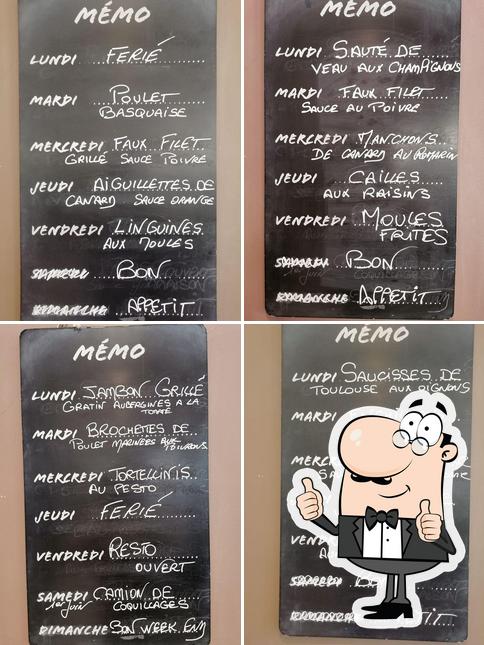 MÉMO
LUNDI FERIÉ
MARDI POULET
BASQUAISE
MERCREDI FAUX FILET
GRILLÉ SAUCE POIVRE
JEUDI AIGUILLETTES DE
CANARD SAUCE ORANGE
VENDREDI LINGUINES
AUX MOULES
SAMEDI BON
DIMANCHE APPETIT
MÉMO
LUNDI SAUTÉ DE
VEAU AUX CHAMPIGNONS
MARDI FAUX FILET
SAUCE AU POIVRE
MERCREDI MANCHONS
DE CANARD AU ROMARIN
JEUDI CAILLES
AUX RAISINS
VENDREDI MOULES
FRITES
SAMEDI BON
DIMANCHE APPETIT
MÉMO
LUNDI JAMBON GRILLÉ
GRATIN AUBERGINES A LA
TOMATE
MARDI BROCHETTES DE
POULET MARINÉES AUX
POIVRONS
MERCREDI TORTELLINIS
AU PESTO
JEUDI FERIÉ
VENDREDI RESTO
OUVERT
SAMEDI CAMION DE
1er Juin COQUILLAGES
DIMANCHE BON WEEK END
MÉMO
LUNDI SAUCISSES DE
TOULOUSE AUX OIGNONS
MARDI